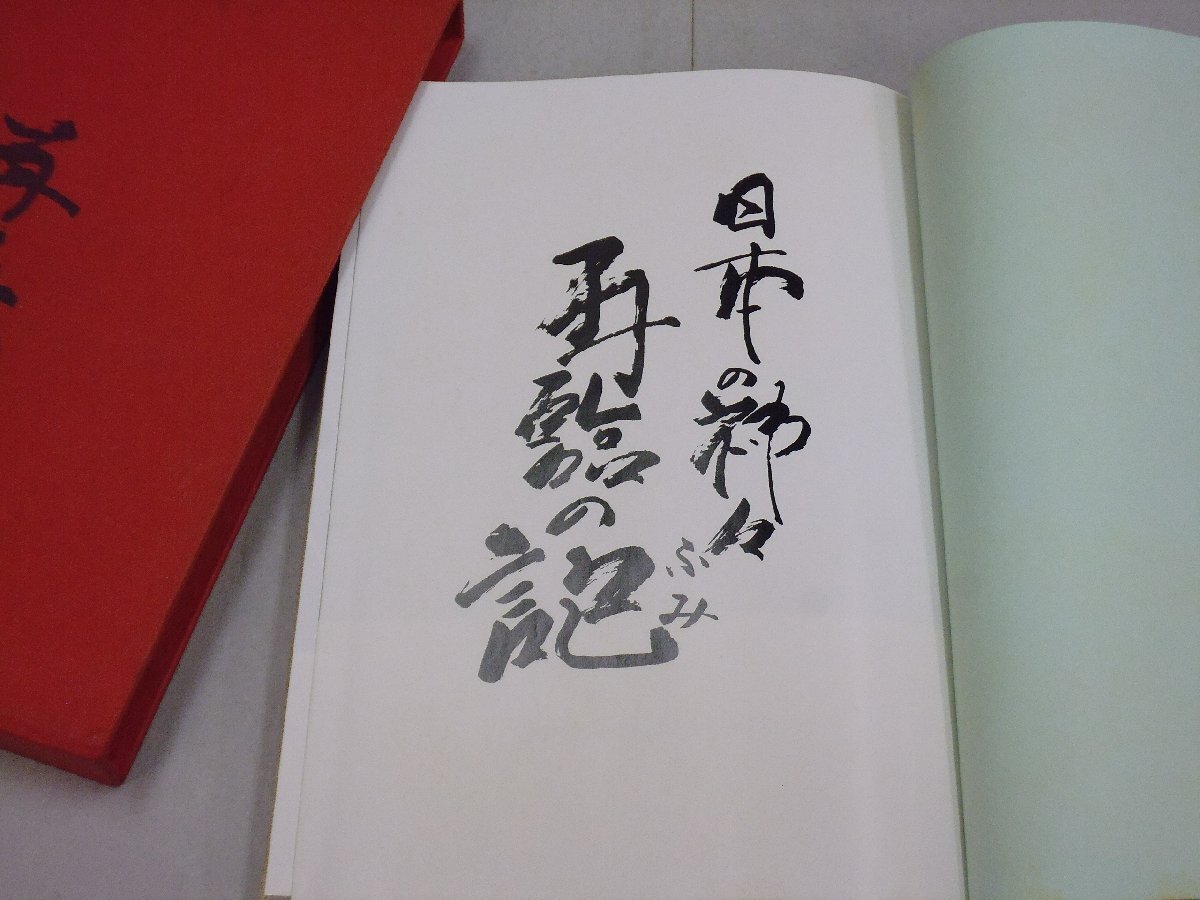 日本の神々
再臨の記
ふみ